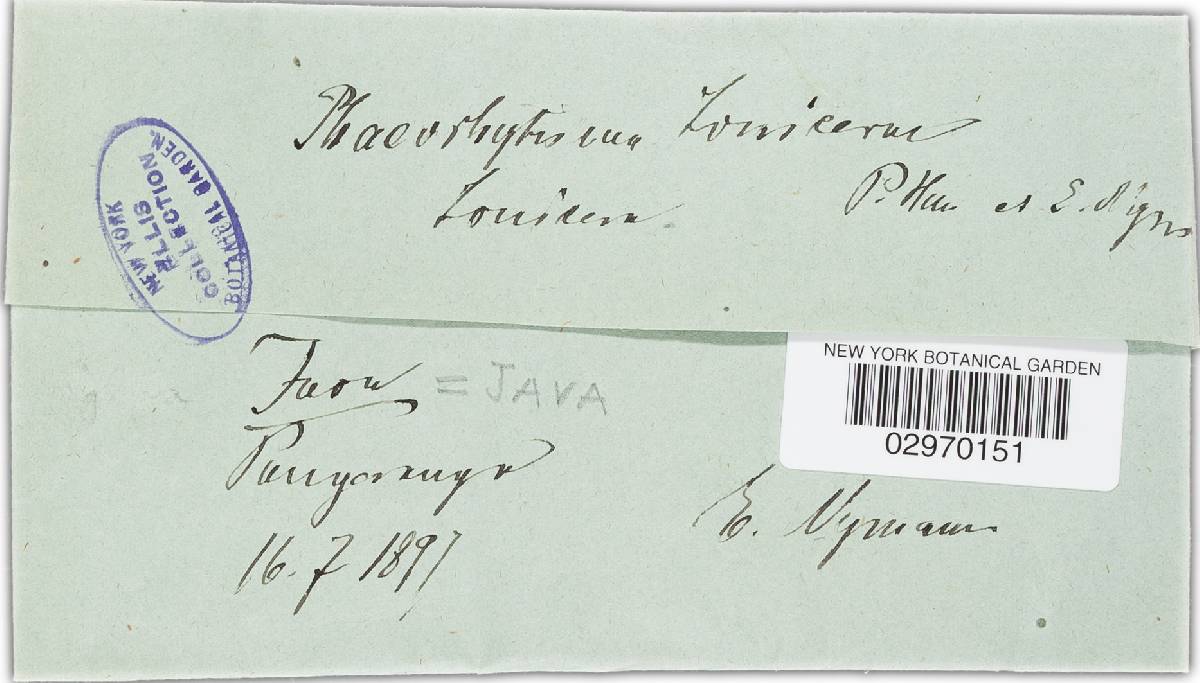 Phaeorhytisma Lonicerae
Lonicera.
P. Hen et E. Nym
NEW YORK
BOTANICAL GARDEN
ELLIS
COLLECTION
Java = JAVA
Pangerango
16.7 1897
E. Nyman
NEW YORK BOTANICAL GARDEN
02970151